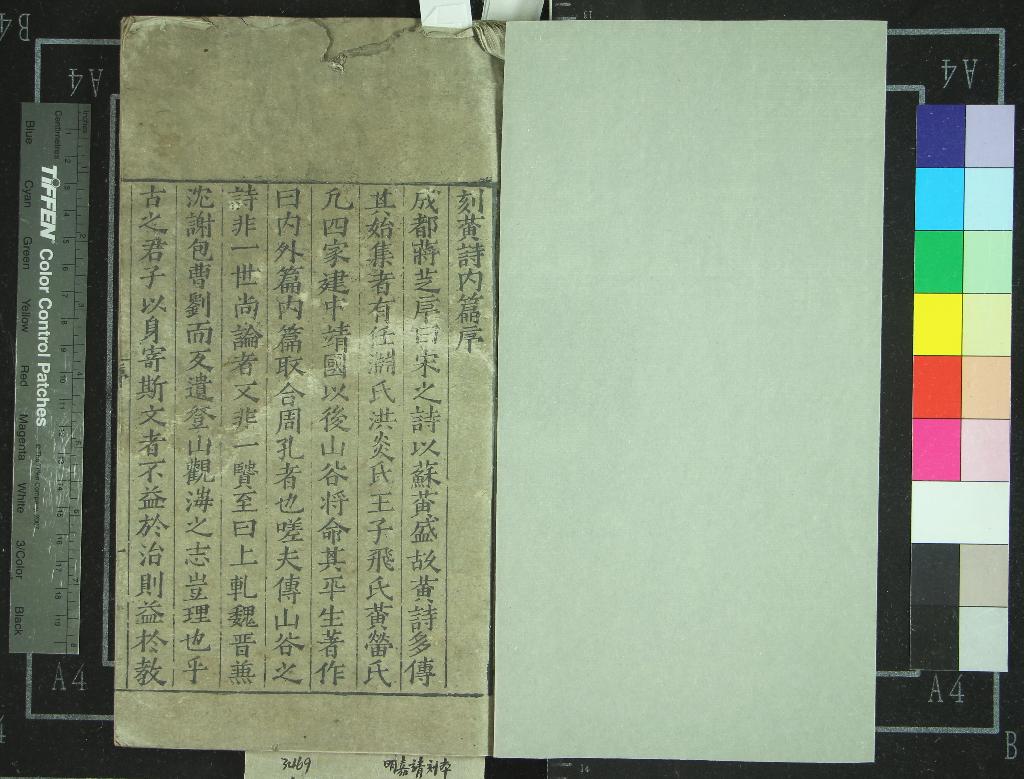 刻黃詩内篇序
成都蔣芝序曰宋之詩以蘇黃盛故黃詩多傳
其始集者有任淵氏洪炎氏王子飛氏黃㽦氏
凡四家建中靖國以後山谷将命其平生著作
曰内外篇内篇取合周孔者也嗟夫傳山谷之
詩非一世尚論者又非一賢至曰上軋魏晋蕪
沈謝包曹劉而又遺登山觀海之志豈理也乎
古之君子以身寄斯文者不益於治則益於教
序
TIFFEN Color Control Patches
Inches
Centimetres
Blue Cyan Green Yellow Red Magenta White 3/Color Black
A4
A4
A4
A4
B4
B
3469
明嘉靖刊本